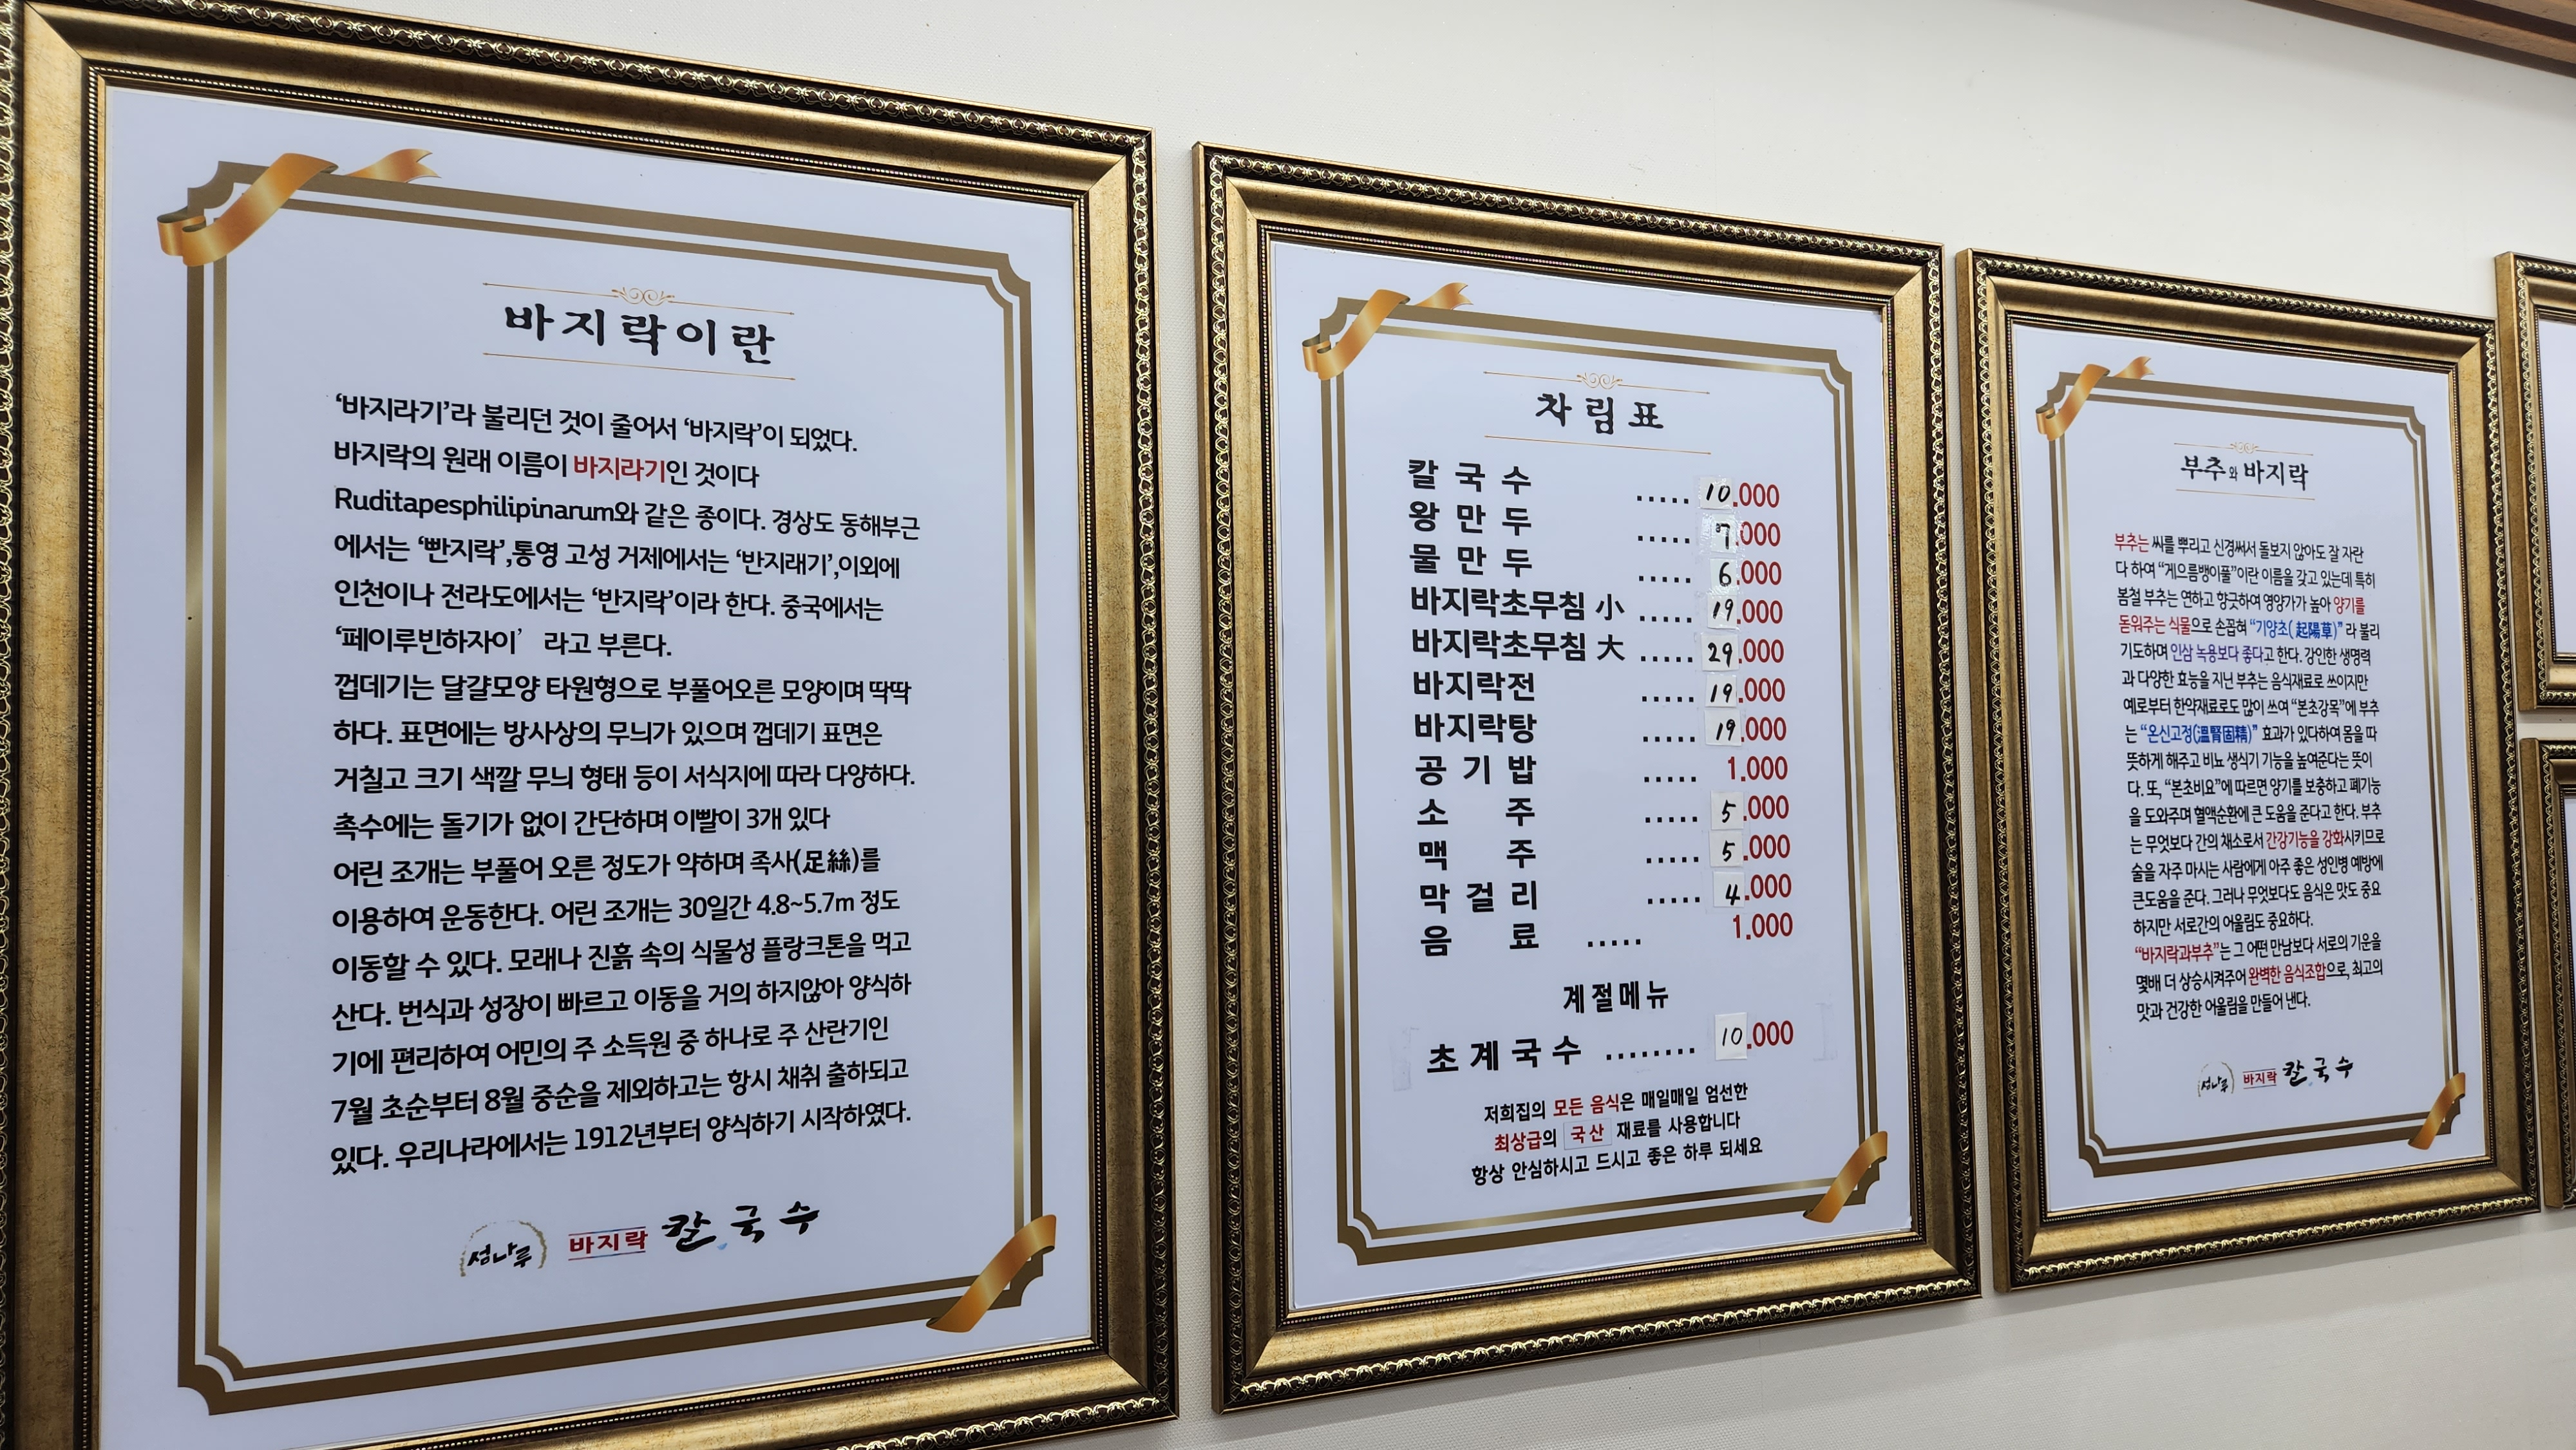 바지락이란
‘바지라기’라 불리던 것이 줄어서 ‘바지락’이 되었다.
바지락의 원래 이름이 바지라기인 것이다
Ruditapesphilipinarum와 같은 종이다. 경상도 동해부근
에서는 ‘빤지락’,통영 고성 거제에서는 ‘반지래기’,이외에
인천이나 전라도에서는 ‘반지락’이라 한다. 중국에서는
‘페이루빈하자이’ 라고 부른다.
껍데기는 달걀모양 타원형으로 부풀어오른 모양이며 딱딱
하다. 표면에는 방사상의 무늬가 있으며 껍데기 표면은
거칠고 크기 색깔 무늬 형태 등이 서식지에 따라 다양하다.
촉수에는 돌기가 없이 간단하며 이빨이 3개 있다
어린 조개는 부풀어 오른 정도가 약하며 족사(足絲)를
이용하여 운동한다. 어린 조개는 30일간 4.8~5.7m 정도
이동할 수 있다. 모래나 진흙 속의 식물성 플랑크톤을 먹고
산다. 번식과 성장이 빠르고 이동을 거의 하지않아 양식하
기에 편리하여 어민의 주 소득원 중 하나로 주 산란기인
7월 초순부터 8월 중순을 제외하고는 항시 채취 출하되고
있다. 우리나라에서는 1912년부터 양식하기 시작하였다.
섬나루 바지락 칼국수
차림표
칼국수 ..... 10.000
왕만두 ..... 7.000
물만두 ..... 6.000
바지락초무침 小 ..... 19.000
바지락초무침 大 ..... 29.000
바지락전 ..... 19.000
바지락탕 ..... 19.000
공기밥 ..... 1.000
소주 ..... 5.000
맥주 ..... 5.000
막걸리 ..... 4.000
음료 ..... 1.000
계절메뉴
초계국수 ........ 10.000
저희집의 모든 음식은 매일매일 엄선한
최상급의 국산 재료를 사용합니다
항상 안심하시고 드시고 좋은 하루 되세요
부추와 바지락
부추는 씨를 뿌리고 신경써서 돌보지 않아도 잘 자란
다 하여 “게으름뱅이풀”이란 이름을 갖고 있는데 특히
봄철 부추는 연하고 향긋하여 영양가가 높아 양기를
돋워주는 식물으로 손꼽혀 “기양초(起陽草)” 라 불리
기도하며 인삼 녹용보다 좋다고 한다. 강인한 생명력
과 다양한 효능을 지닌 부추는 음식재료로 쓰이지만
예로부터 한약재료로도 많이 쓰여 “본초강목”에 부추
는 “온신고정(溫腎固精)” 효과가 있다하여 몸을 따
뜻하게 해주고 비뇨 생식기 기능을 높여준다는 뜻이
다. 또, “본초비요”에 따르면 양기를 보충하고 폐기능
을 도와주며 혈액순환에 큰 도움을 준다고 한다. 부추
는 무엇보다 간의 채소로서 간강기능을 강화시키므로
술을 자주 마시는 사람에게 아주 좋은 성인병 예방에
큰도움을 준다. 그러나 무엇보다도 음식은 맛도 중요
하지만 서로간의 어울림도 중요하다.
“바지락과부추”는 그 어떤 만남보다 서로의 기운을
몇배 더 상승시켜주어 완벽한 음식조합으로, 최고의
맛과 건강한 어울림을 만들어 낸다.
섬나루 바지락 칼국수